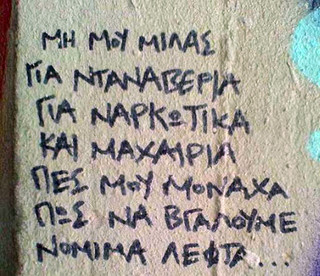 ΜΗ ΜΟΥ ΜΙΛΑΣ
ΓΙΑ ΝΤΑΝΑΒΕΡΙΑ
ΓΙΑ ΝΑΡΚΩΤΙΚΑ
ΚΑΙ ΜΑΧΑΙΡΙΑ
ΠΕΣ ΜΟΥ ΜΟΝΑΧΑ
ΠΩΣ ΝΑ ΒΓΑΛΟΥΜΕ
ΝΟΜΙΜΑ ΛΕΦΤΑ...